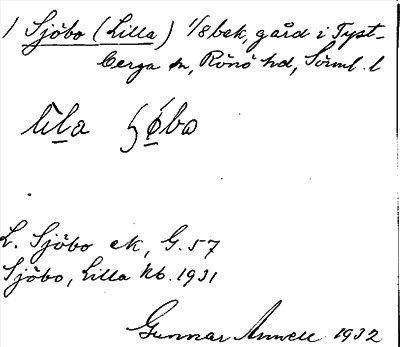 1 Sjöbo (Lilla) 1/8 bek, gård i Tyst-
berga sn, Rönö hd, Sörml. l
lila ɧøbo
L. Sjöbo ek, G. 57
Sjöbo, Lilla kb. 1931
Gunnar Annell 1932